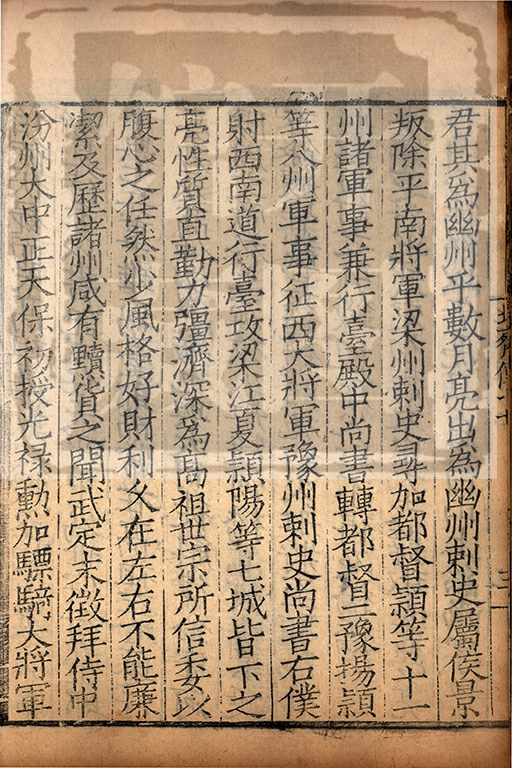 君其為幽州乎數月亮出為幽州刺史屬侯景
叛除平南將軍梁州刺史尋加都督潁等十一
州諸軍事兼行臺殿中尚書轉都督二豫揚潁
等八州軍事征西大將軍豫州刺史尚書右僕
射西南道行臺攻梁江夏潁陽等七城皆下之
亮性質直勤力彊濟深為高祖世宗所信委以
腹心之任然少風格好財利久在左右不能廉
潔及歷諸州咸有黷貨之聞武定末徵拜侍中
汾州大中正天保初授光祿勳加驃騎大將軍